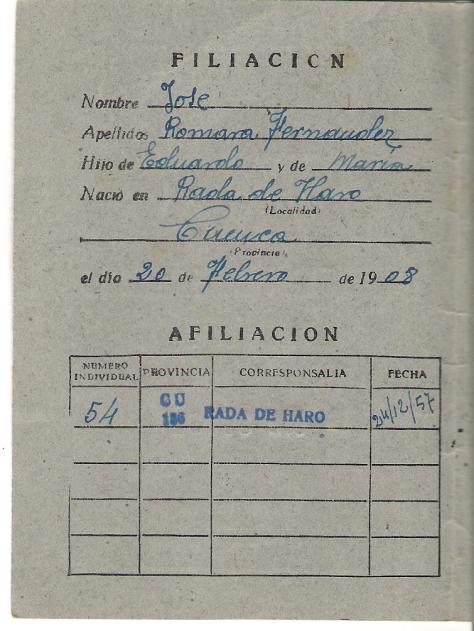 FILIACION
Nombre Jose
Apellidos Romara Fernandez
Hijo de Eduardo y de Maria
Nació en Rada de Haro
(Localidad)
Cuenca
(Provincia)
el día 20 de Febrero de 1908
AFILIACION
NUMERO INDIVIDUAL PROVINCIA CORRESPONSALIA FECHA
54 CU 186 RADA DE HARO 24/12/57